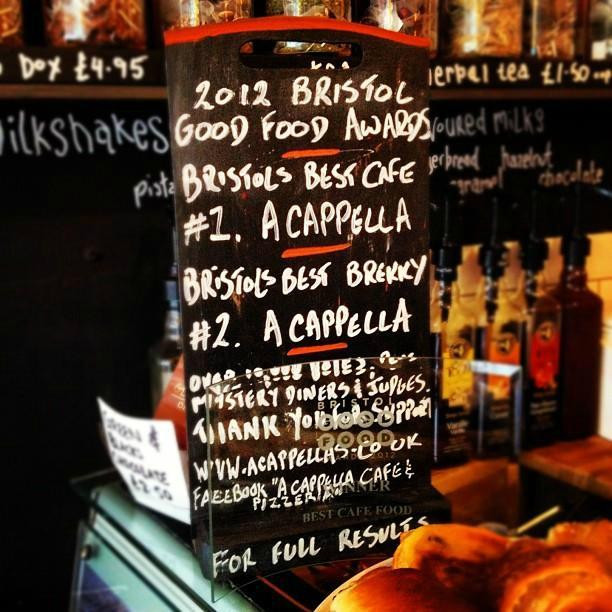 Box £4.95
erbal tea £1.50
ilkshakes
pista
oured milks
gerbread hazelnut
caramel chocolate
2012 BRISTOL
GOOD FOOD AWARDS
BRISTOLS BEST CAFE
#1. A CAPPELLA
BRISTOLS BEST BREKKY
#2. A CAPPELLA
OVER VOTES, PLUS
MYSTERY DINERS & JUDGES.
THANK YOU FOR SUPPORT
WWW.ACAPPELLAS.CO.UK
FACEBOOK "A CAPPELLA CAFE &
PIZZERIA"
FOR FULL RESULTS
BRISTOL
GOOD
FOOD
2012
WINNER
BEST CAFE FOOD
GREEN &
BLACKS
CHOCOLATE
£2.50